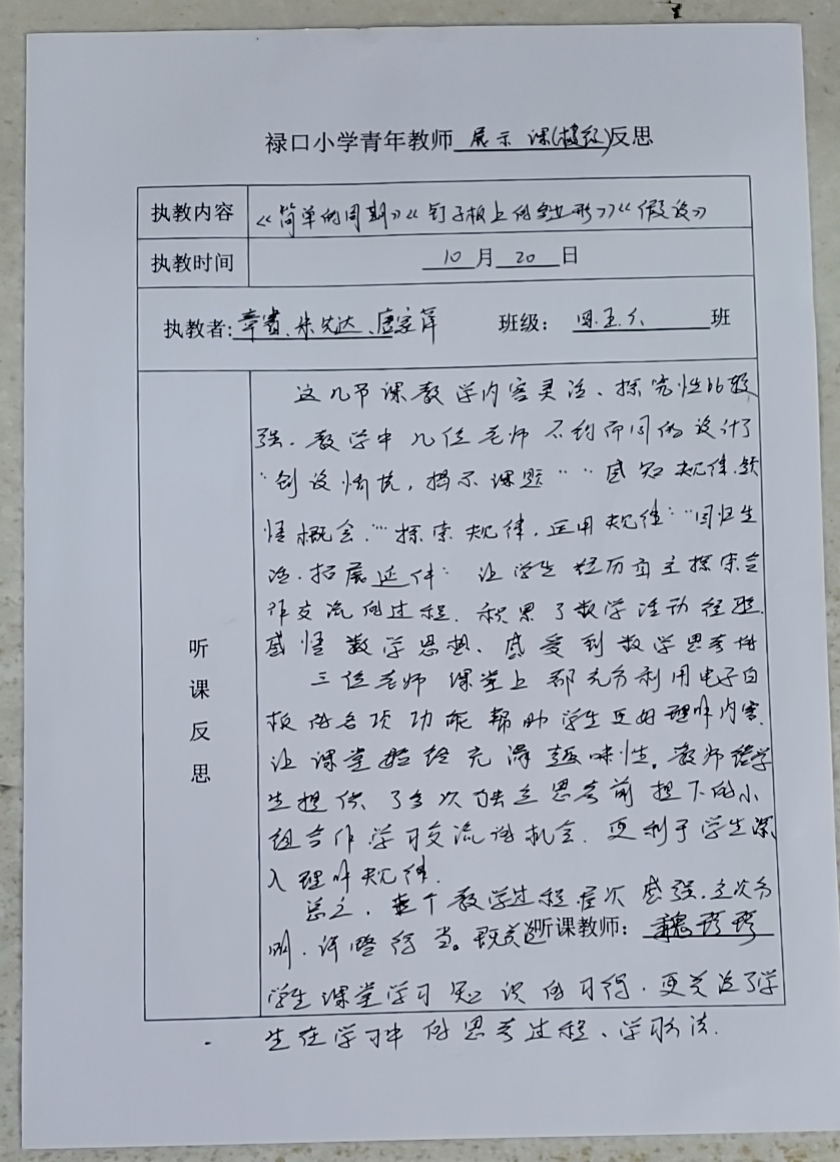 禄口小学青年教师展示课(校级)反思
执教内容 《简单的周期》《钉子板上的多边形》《假设》
执教时间 10月20日
执教者: 章 、朱 达、唐 萍 班级: 四.五.六班
听课反思
这几节课教学内容灵活、探究性比较
强.教学中几位老师不约而同的设计了
“创设情境,揭示课题”“感知规律.领
悟概念.”“探索规律.运用规律”“回归生
活.拓展延伸”让学生经历自主探索合
作交流的过程.积累了数学活动经验.
感悟数学思想、感受到数学思考性
三位老师课堂上都充分利用电子白
板的各项功能帮助学生更好理解内容.
让课堂始终充满趣味性。教师给学
生提供了多次独立思考前提下的小
组合作学习交流的机会.更利于学生深
入理解规律.
总之.整个教学过程层次感强.主次分
明.详略得当。既关注
听课教师:魏珍珍
学生课堂学习知识的习得.更关注了学
生在学习中的思考过程、学习方法.